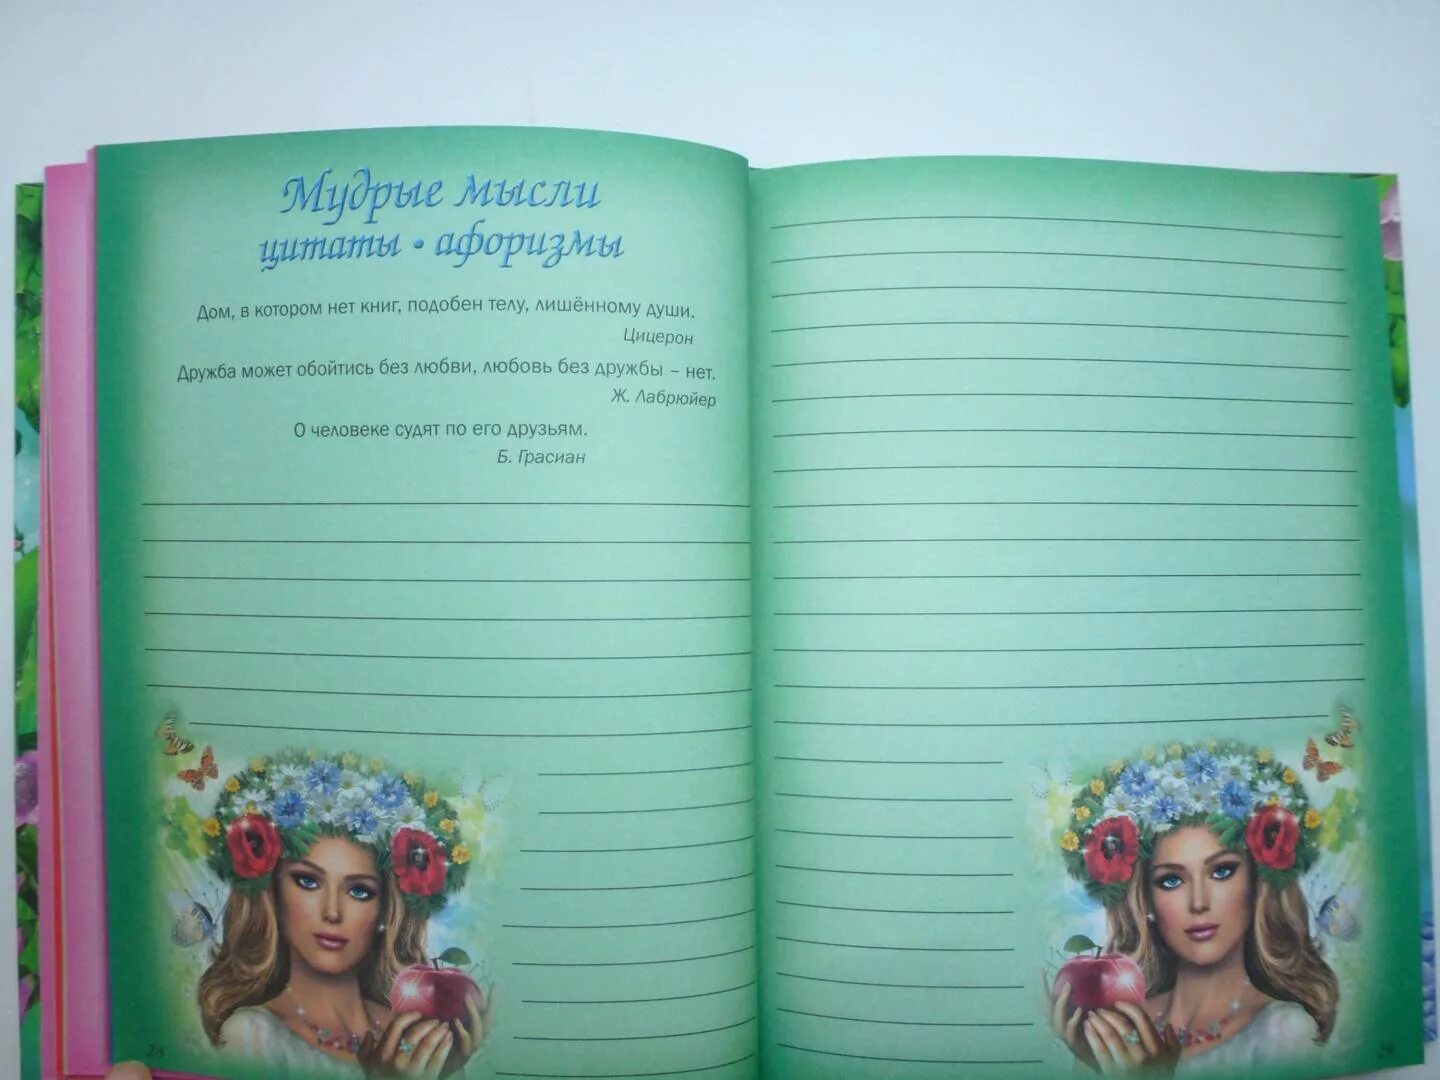 Мудрые мысли
цитаты • афоризмы
Дом, в котором нет книг, подобен телу, лишённому души.
Цицерон
Дружба может обойтись без любви, любовь без дружбы – нет.
Ж. Лабрюйер
О человеке судят по его друзьям.
Б. Грасиан
28
29